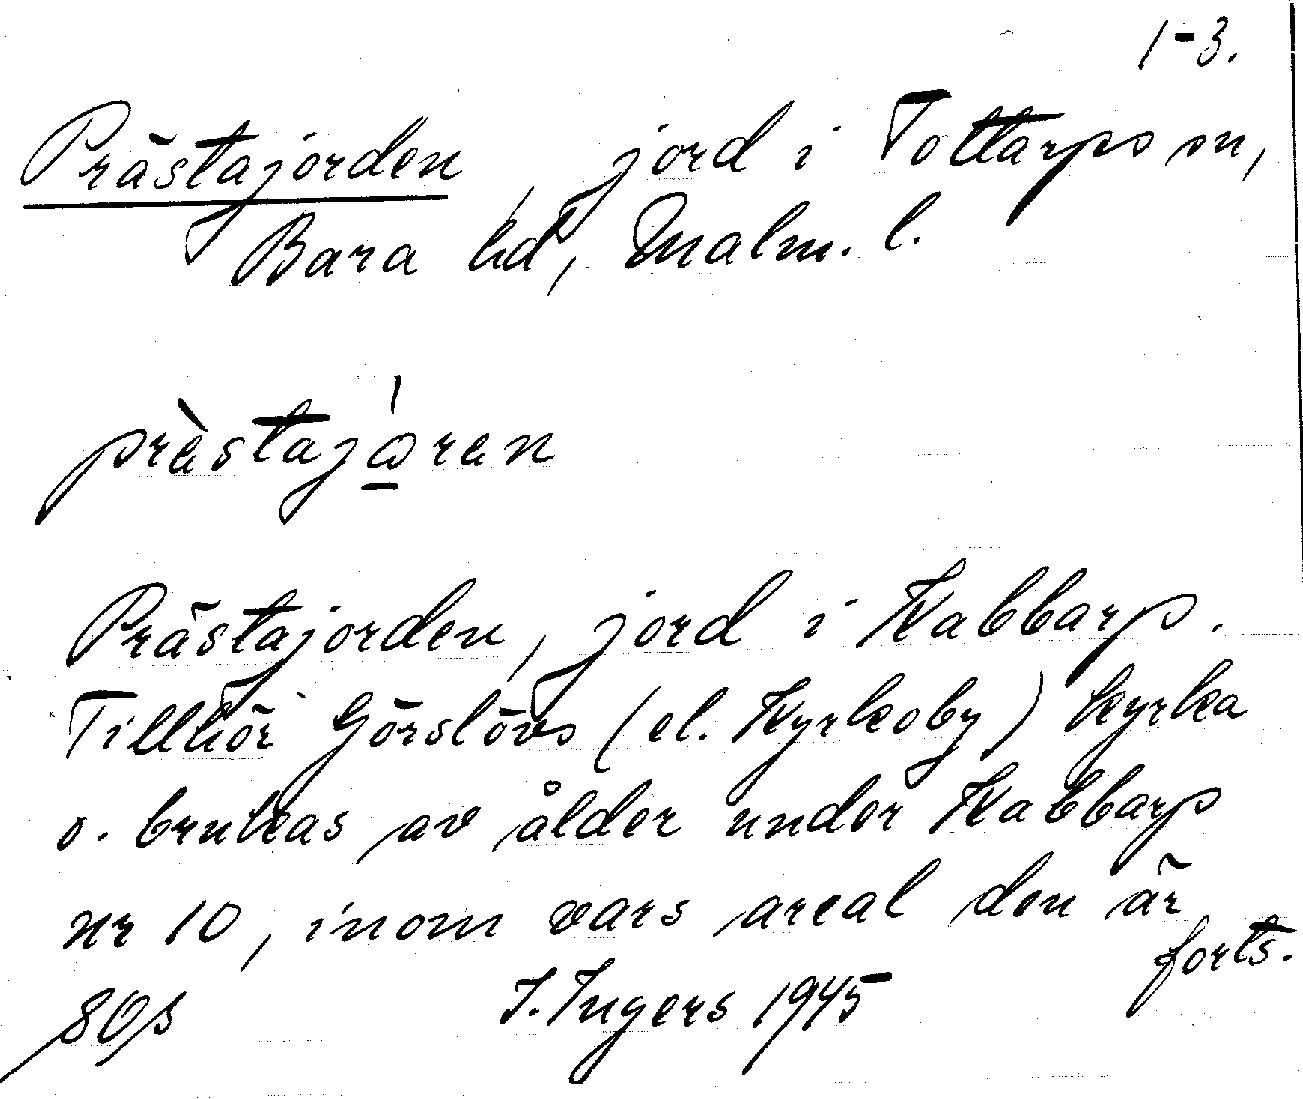 1-3.
Prästajorden, jord i Tottarps sn,
Bara hd, Malm. l.
prèstajọ́ren
Prästajorden, jord i Kabbarp.
Tillhör Görslövs (el. Kyrkoby) kyrka
o. brukas av ålder under Kabbarp
nr 10, inom vars areal den är
forts.
I. Ingers 1945